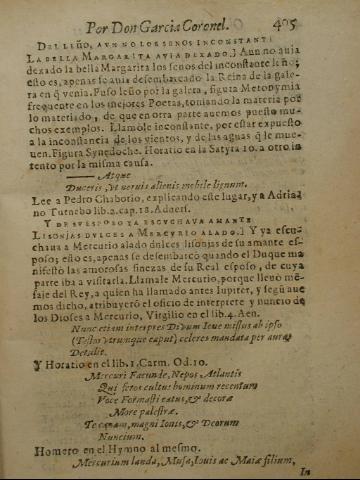 Por Don Garcia Coronel. 405
DEL LEÑO, AVN NO LOS SENOS INCONSTANTE
LA BELLA MARGARITA AVIA DEXADO.] Aun no auia
dexado la bella Margarita los senos del inconstante leño;
esto es, apenas se auia desembarcado la Reina de la gale-
ra en q̃ venia. Puso leño por la galera, figura Metonymia
frequente en los mejores Poetas, tomando la materia por
lo materiado, de que en otra parte auemos puesto mu-
chos exemplos. Llamole inconstante, por estar expuesto
a la inconstancia de los vientos, y de las aguas q̃ le mue-
uen. Figura Synedoche. Horatio en la Satyra 10. a otro in
tento por la misma causa.
— Atque
Duceris, vt neruis alienis mobile lignum.
Lee a Pedro Chabotio, explicando este lugar, y a Adria-
no Turnebo lib. 2. cap. 18. Aduers.
Y DE SV ESPOSO YA ESCVCHAVA AMANTE
LISONJAS DVLCES A MERCVRIO ALADO.] Y ya escu-
chaua a Mercurio alado dulces lisonjas de su amante es-
poso; esto es, apenas se desembarcò quando el Duque ma
nifestò las amorosas finezas de su Real esposo, de cuya
parte iba a visitarla. Llamale Mercurio, porque lleuò mẽ-
saje del Rey, a quien ha llamado antes Iupiter, y segũ aue
mos dicho, atribuyerõ el oficio de interprete y nuncio de
los Dioses a Mercurio, Virgilio en el lib. 4. Aen.
Nunc etiam interpres Diuum Ioue missus ab ipso
(Testor vtrumque caput) celeres mandata per auras
Detulit.
Y Horatio en el lib. 1. Carm. Od. 10.
Mercuri Facunde, Nepos, Atlantis
Qui feros cultus hominum recentum
Voce Formasti catus, & decoræ
More palestræ.
Te canam, magni Iouis, & Deorum
Nuncium.
Homero en el Hymno al mesmo.
Mercurium lauda, Musa, Iouis ac Maiæ filium,
In